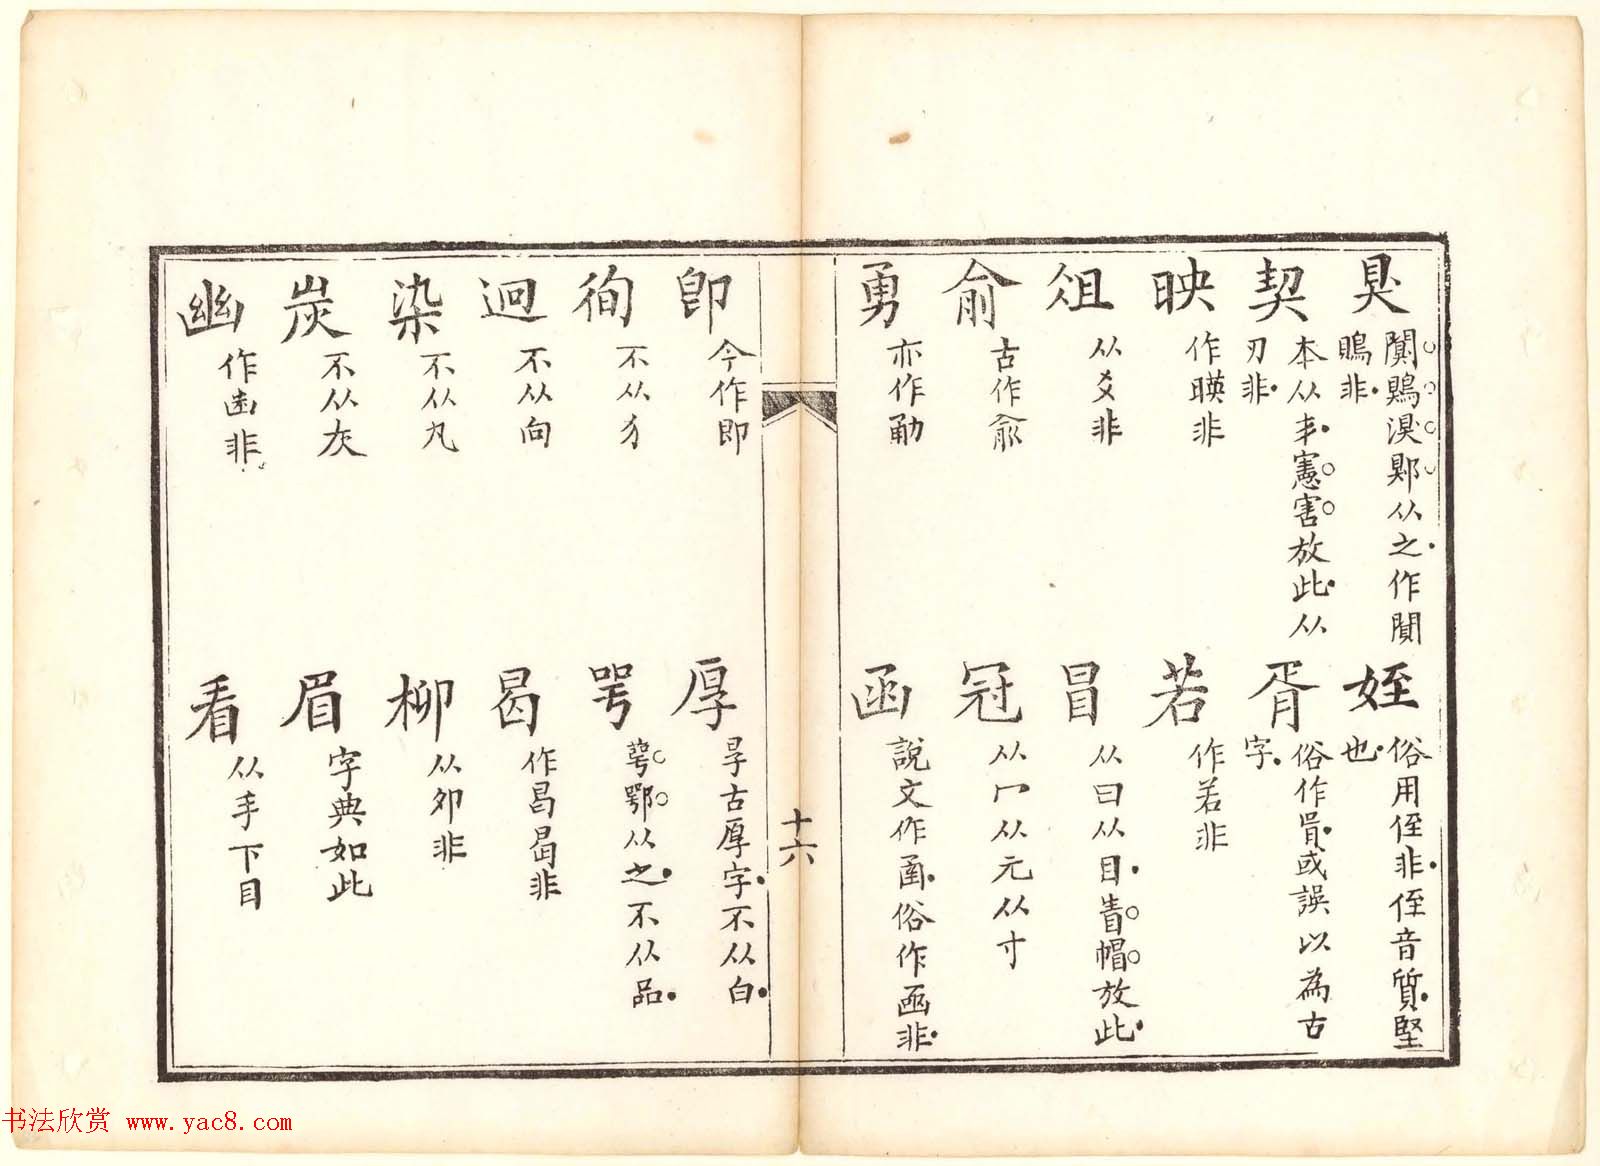 狊 闃鶪湨郹从之作闃鵙非
契 本从丯憲害放此从刃非
映 作暎非
俎 从爻非
俞 古作兪
勇 亦作勈
姪 俗用侄非侄音質堅也
胥 俗作㥠或誤以為古字
若 作若非
冒 从曰从目帽放此
冠 从冖从元从寸
函 說文作圅俗作凾非
十六
卽 今作即
徇 不从犭
迥 不从向
染 不从丸
炭 不从灰
幽 作凼非
厚 㫗古厚字不从白
咢 萼鄂从之不从品
曷 作昌曷非
柳 从夘非
眉 字典如此
看 从手下目
书法欣赏 www.yac8.com